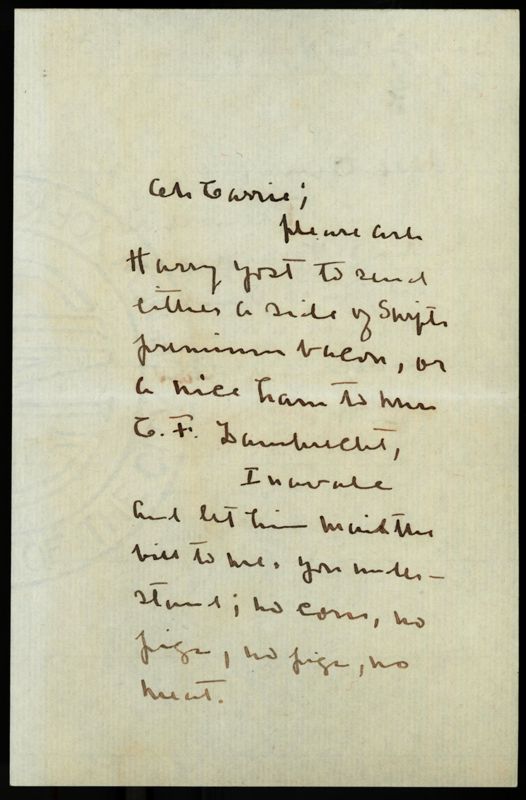 Oh Carrie;
please ask
Harry Yost to send
either a side of Swifts
premium bacon, or
a nice ham to Mrs
C. F. Lambrecht,
Inavale
and let him mail the
bill to me. You under-
stand; no corn, no
pigs, no pigs, no
meat.